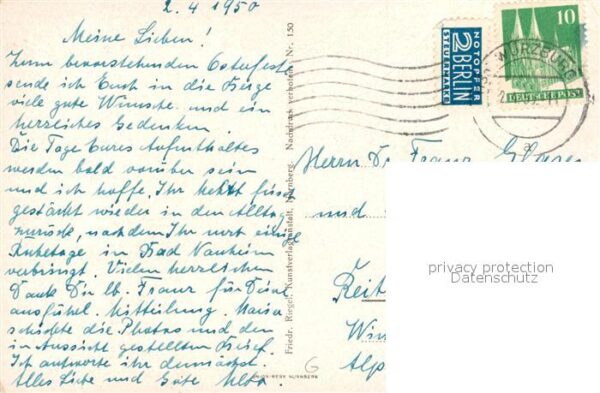 2.4 1950
Meine Lieben!
Zum bevorstehenden Osterfest
sende ich Euch in die Berge
viele gute Wünsche und ein
herzliches Gedenken.
Die Tage Eures Aufenthaltes
werden bald vorüber sein
und ich hoffe, Ihr kehrt
gestärkt wieder in den Alltag
zurück, nachdem Ihr noch einige
Ruhetage in Bad Nauheim
verbringt. Vielen herzlichen
Dank Dir lb. Franz für Deine
ausführl. Mitteilung.
schickte die Photos und den
in Aussicht gestellten Brief.
Ich antworte ihr demnächst.
Alles Liebe und Gute
Friedr. Riegel, Kunstverlagsanstalt, Nürnberg. Nachdruck verboten! Nr. 150
G
NÜRNBERG
NOTOPFER
2 BERLIN
STEUERMARKE
WÜRZBURG
10
DEUTSCHE POST
Herrn Dr. Franz
und
Reit
Win
Alp
privacy protection
Datenschutz